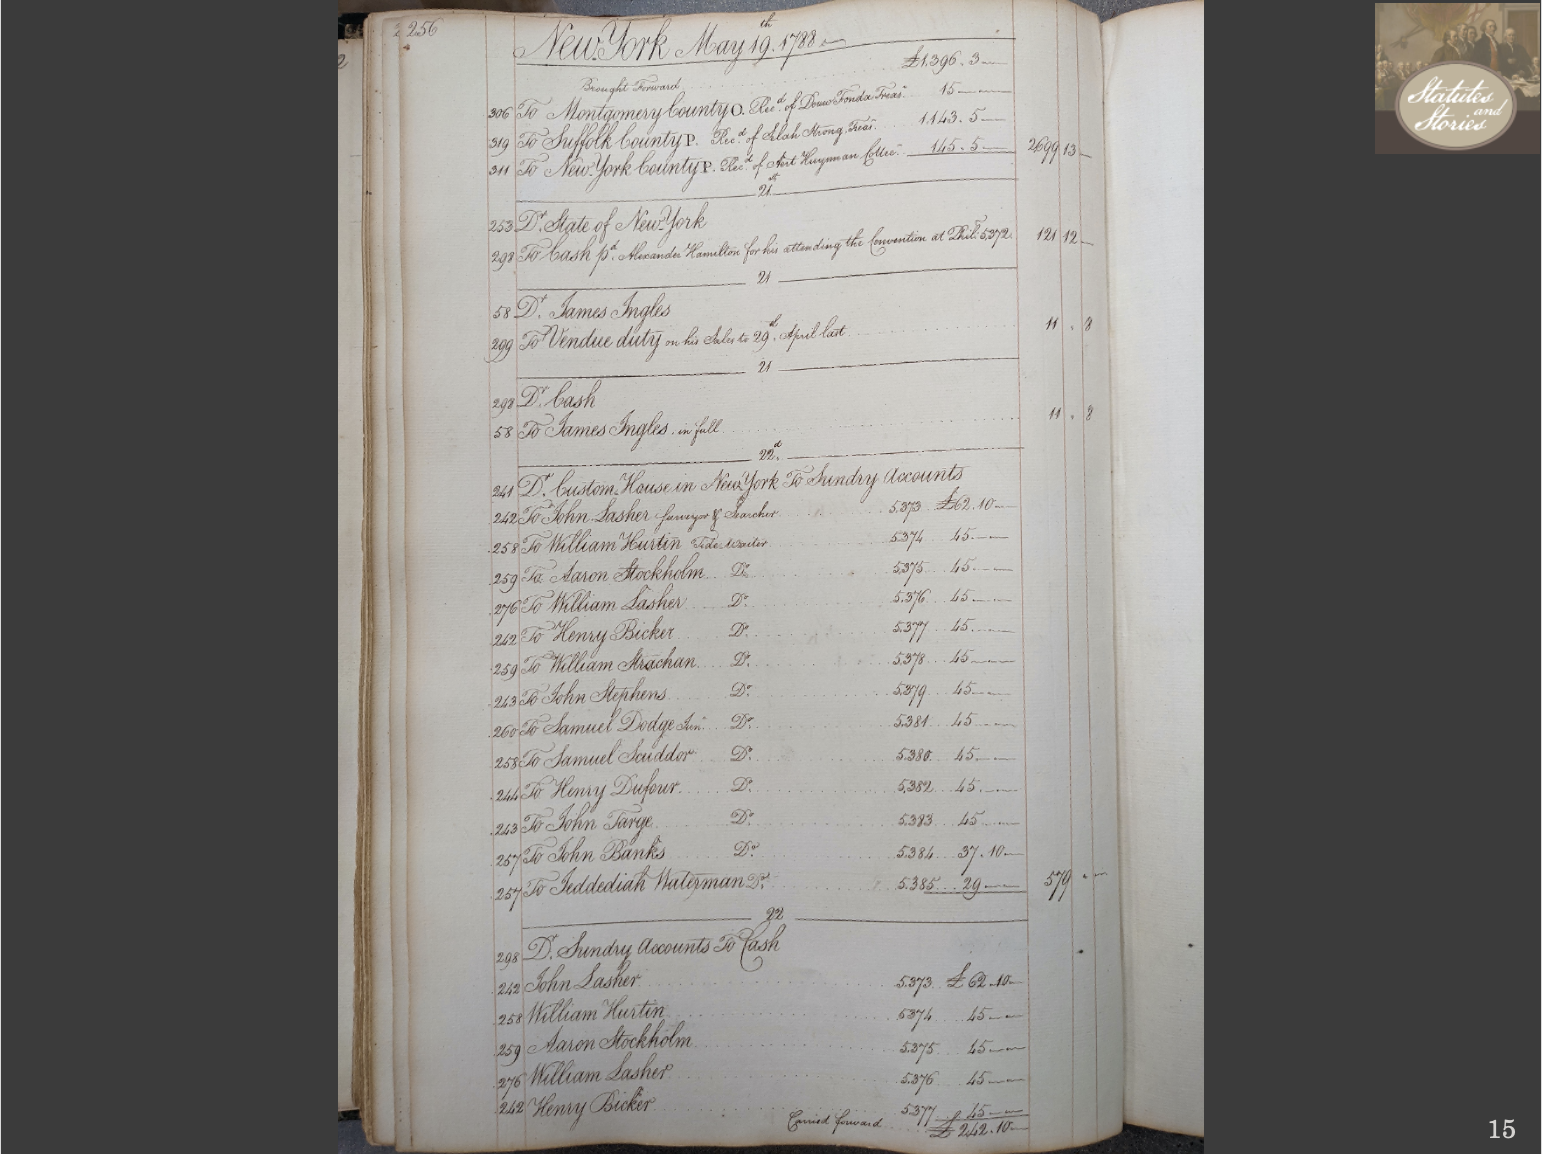 256
New York May 19th. 1788
Brought Forward £1.396.3
306 To Montgomery County O. Recd. of Douw Fonda Treasr. 15
319 To Suffolk County P. Recd. of Selah Strong Treasr. 1.143.5
311 To New York County P. Recd. of Aert Huysman Collecr. 145.5 2699 13
21st
253 Dr. State of New York
298 To Cash pd. Alexander Hamilton for his attending the Convention at Phila. 5.372. 121 12
21
58 Dr. James Ingles
299 To Vendue duty on his Sales to 29th. April last 11 . 8
21
298 Dr. Cash
58 To James Ingles in full 11 . 8
22d.
241 Dr. Custom House in New York To Sundry Accounts
242 To John Lasher Surveyor & Searcher 5.373 £62.10
258 To William Hurtin Tide Waiter 5.374 45
259 To Aaron Stockholm Do. 5.375 45
276 To William Lasher Do. 5.376 45
242 To Henry Bicker Do. 5.377 45
259 To William Strachan Do. 5.378 45
243 To John Stephens Do. 5.379 45
260 To Samuel Dodge Junr. Do. 5.381 45
258 To Samuel Scuddor Do. 5.380 45
244 To Henry Dufour Do. 5.382 45
243 To John Targe Do. 5.383 45
257 To John Banks Do. 5.384 37.10
257 To Jeddediah Waterman Do. 5.385 29 579
22
298 Dr. Sundry Accounts To Cash
242 John Lasher 5.373 £62.10
258 William Hurtin 5374 45
259 Aaron Stockholm 5.375 45
276 William Lasher 5.376 45
242 Henry Bicker 5.377 45
Carried forward £242.10
Statutes
and
Stories
15